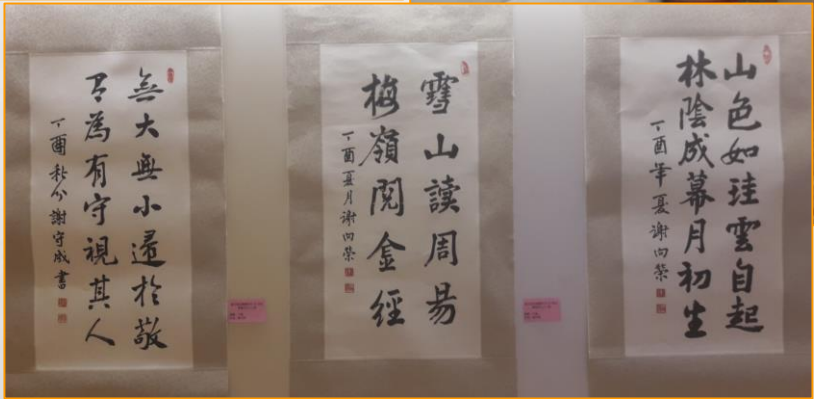 山色如珪雲自起
林陰成幕月初生
丁酉年夏謝向榮
雪山讀周易
梅嶺閱金經
丁酉夏月謝向榮
無大無小於敬
有為有守視其人
丁酉秋分謝守成書